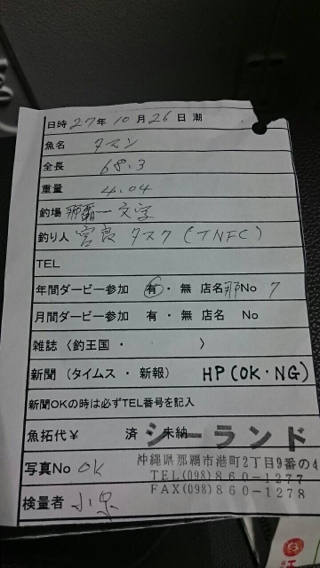 日時 27年 10月 26日 潮
魚名 タマン
全長 68.3
重量 4.04
釣場 那覇一文字
釣り人 宮良 タスク (TNFC)
TEL
年間ダービー参加 有・無 店名 那 No 7
月間ダービー参加 有・無 店名 No
雑誌〈釣王国・ 〉
新聞 (タイムス・新報) HP(OK・NG)
新聞OKの時は必ずTEL番号を記入
魚拓代¥ 済 未納
シーランド
沖縄県那覇市港町2丁目9番の4
写真No OK
TEL(098)860-1277
FAX(098)860-1278
検量者 小